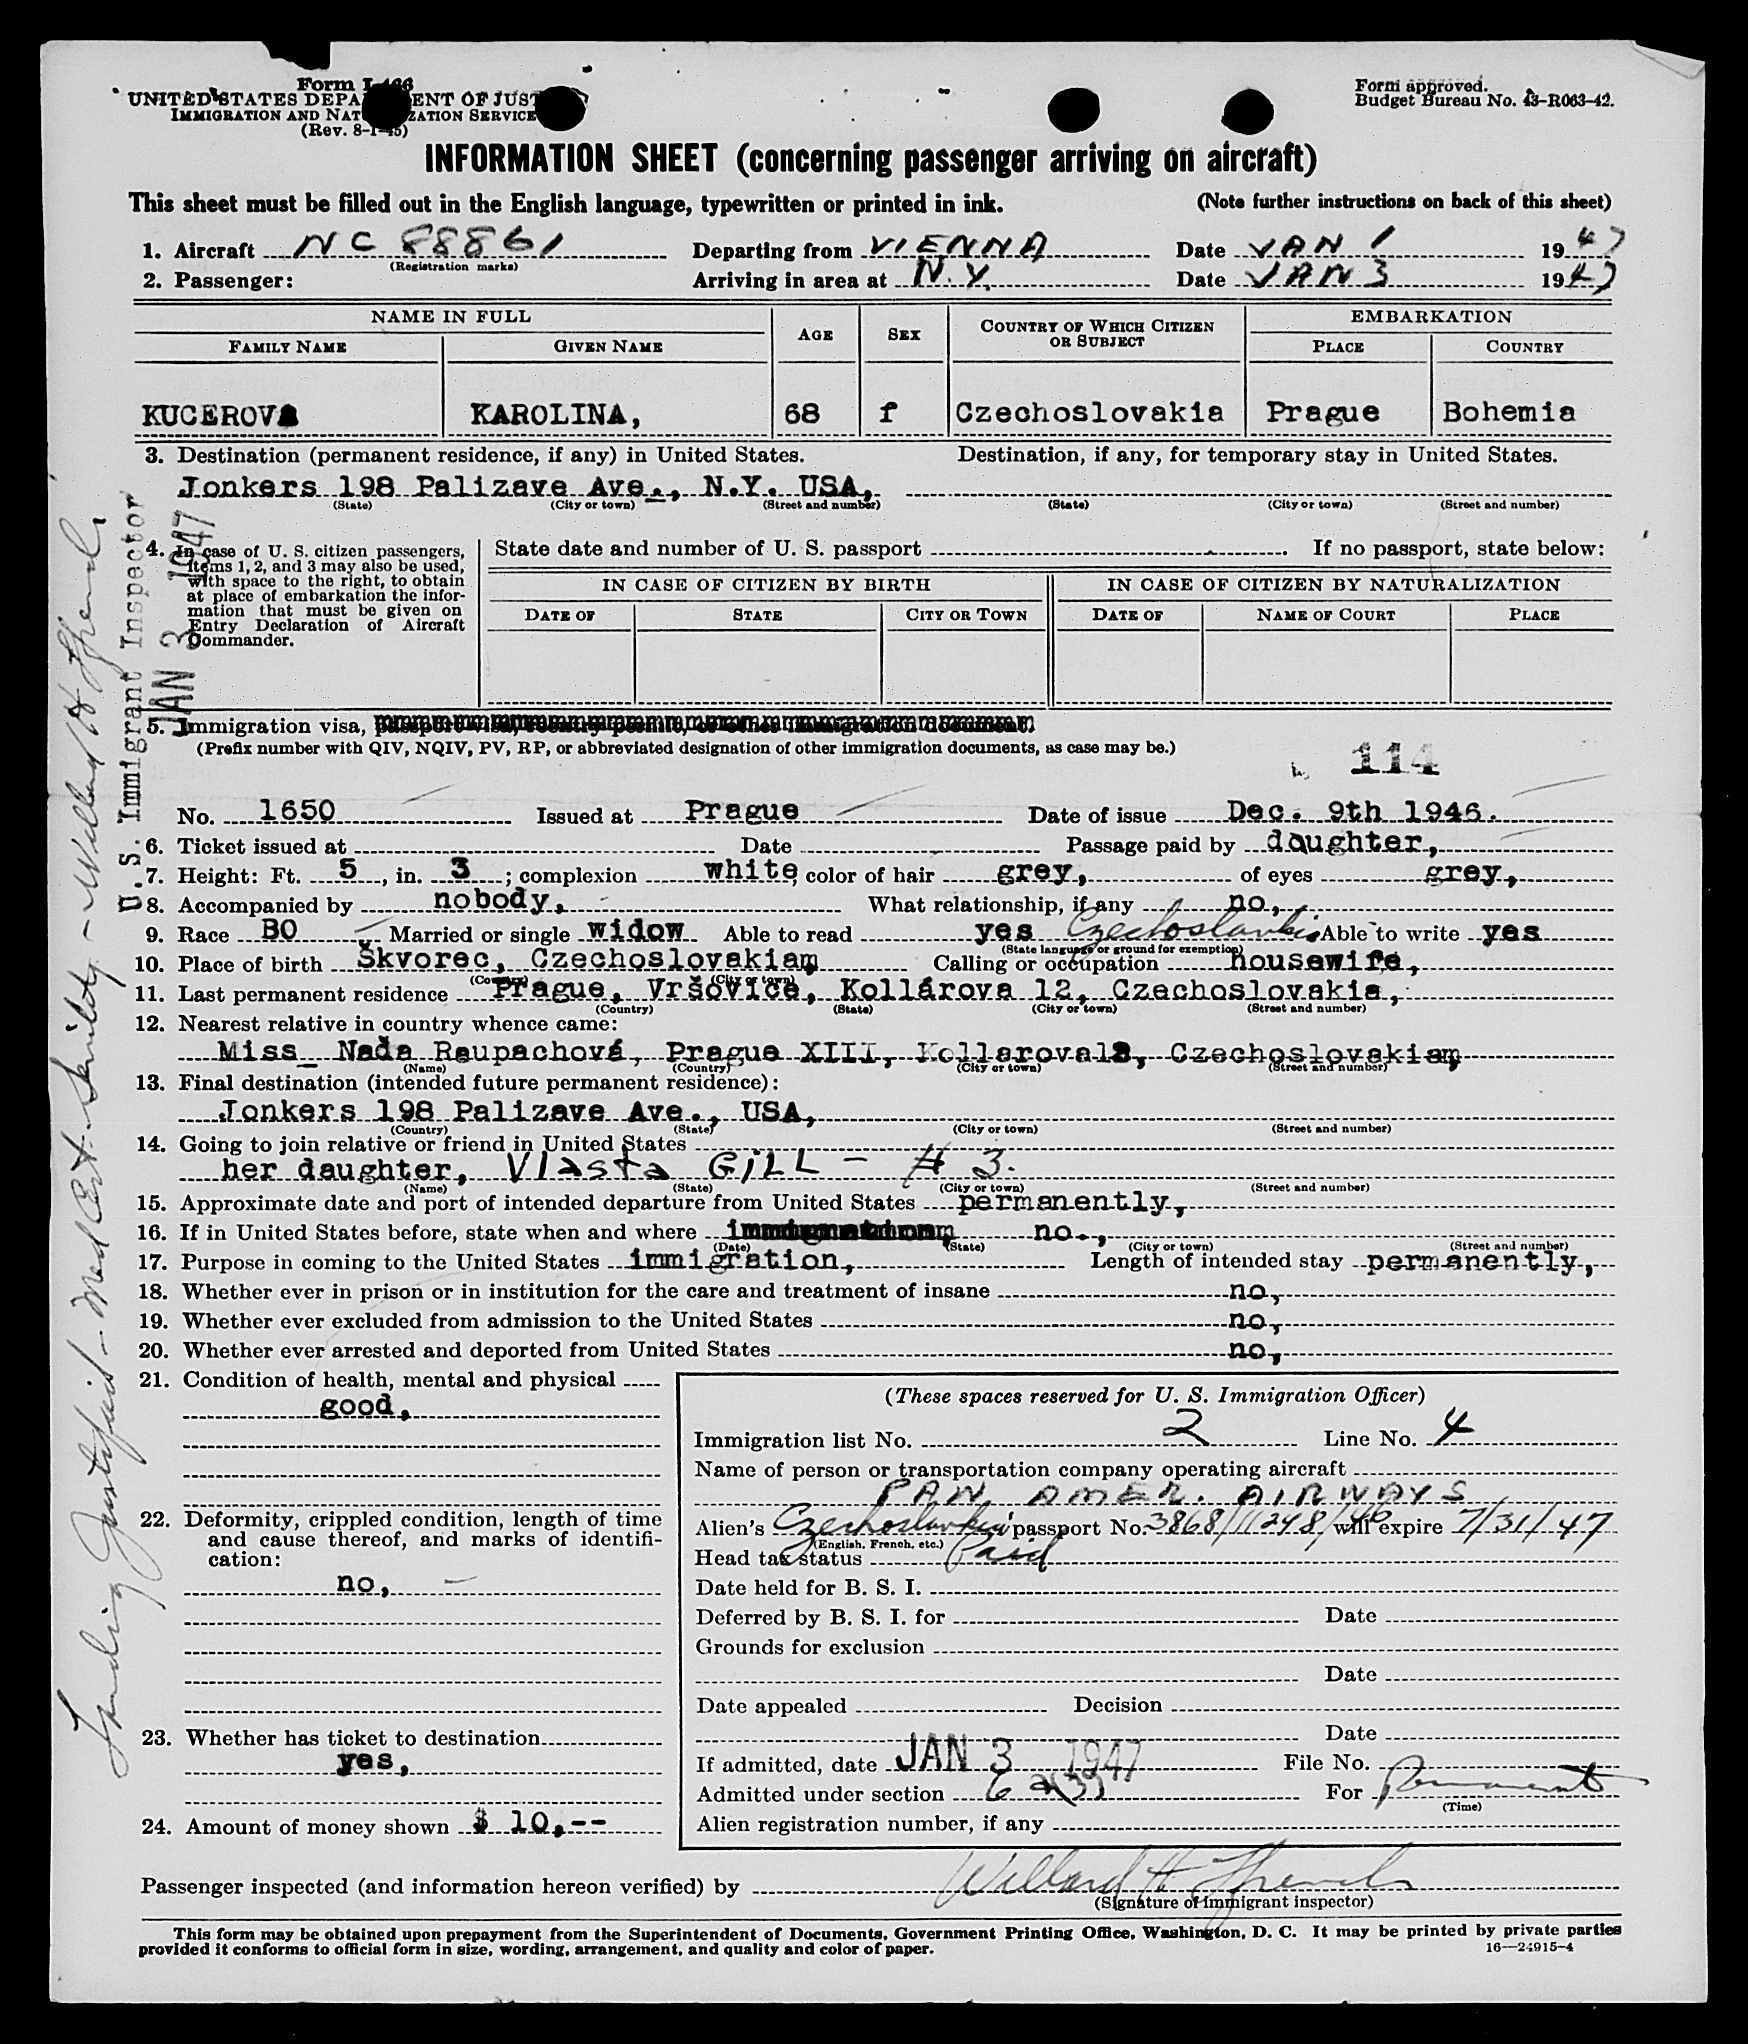 Form I-466
UNITED STATES DEPARTMENT OF JUSTICE
IMMIGRATION AND NATURALIZATION SERVICE
(Rev. 8-1-45)
Form approved.
Budget Bureau No. 43-R063-42.
INFORMATION SHEET (concerning passenger arriving on aircraft)
This sheet must be filled out in the English language, typewritten or printed in ink. (Note further instructions on back of this sheet)
1. Aircraft NC 88861 Departing from VIENNA Date JAN 1 1947
(Registration marks)
2. Passenger: Arriving in area at N.Y. Date JAN 3 1947
NAME IN FULL AGE SEX COUNTRY OF WHICH CITIZEN OR SUBJECT EMBARKATION
FAMILY NAME GIVEN NAME PLACE COUNTRY
KUCEROVA KAROLINA, 68 f Czechoslovakia Prague Bohemia
3. Destination (permanent residence, if any) in United States. Destination, if any, for temporary stay in United States.
Jonkers 198 Palizave Ave., N.Y. USA,
(State) (City or town) (Street and number) (State) (City or town) (Street and number)
4. In case of U. S. citizen passengers, items 1, 2, and 3 may also be used, with space to the right, to obtain at place of embarkation the information that must be given on Entry Declaration of Aircraft Commander.
State date and number of U. S. passport . If no passport, state below:
IN CASE OF CITIZEN BY BIRTH IN CASE OF CITIZEN BY NATURALIZATION
DATE OF STATE CITY OR TOWN DATE OF NAME OF COURT PLACE
5. Immigration visa, passport visa, reentry permit, or other immigration document.
(Prefix number with QIV, NQIV, PV, RP, or abbreviated designation of other immigration documents, as case may be.)
114
No. 1650 Issued at Prague Date of issue Dec. 9th 1946.
6. Ticket issued at Date Passage paid by daughter,
7. Height: Ft. 5, in. 3; complexion white, color of hair grey, of eyes grey,
8. Accompanied by nobody, What relationship, if any no,
9. Race BO Married or single widow Able to read yes Czechoslovakia Able to write yes
(State language or ground for exemption)
10. Place of birth Škvorec, Czechoslovakia, Calling or occupation housewife,
(Country) (City or town)
11. Last permanent residence Prague, Vršovice, Kollárova 12, Czechoslovakia,
(Country) (State) (City or town) (Street and number)
12. Nearest relative in country whence came:
Miss Naďa Raupachová, Prague XIII, Kollarova12, Czechoslovakia,
(Name) (Country) (City or town) (Street and number)
13. Final destination (intended future permanent residence):
Jonkers 198 Palizave Ave., USA,
(Country) (State) (City or town) (Street and number)
14. Going to join relative or friend in United States
her daughter, Vlasta GiLL - # 3.
(Name) (State) (City or town) (Street and number)
15. Approximate date and port of intended departure from United States permanently,
16. If in United States before, state when and where immigration, no.,
(Date) (State) (City or town) (Street and number)
17. Purpose in coming to the United States immigration, Length of intended stay permanently,
18. Whether ever in prison or in institution for the care and treatment of insane no,
19. Whether ever excluded from admission to the United States no,
20. Whether ever arrested and deported from United States no,
21. Condition of health, mental and physical
good,
22. Deformity, crippled condition, length of time and cause thereof, and marks of identification:
no, -
23. Whether has ticket to destination
yes,
24. Amount of money shown $ 10,--
(These spaces reserved for U. S. Immigration Officer)
Immigration list No. 2 Line No. 4
Name of person or transportation company operating aircraft
PAN AMER. AIRWAYS
Alien's Czechoslovakia passport No. 3868/11248/46 will expire 7/31/47
(English, French, etc.)
Head tax status Paid
Date held for B. S. I.
Deferred by B. S. I. for Date
Grounds for exclusion
Date
Date appealed Decision
Date
If admitted, date JAN 3 1947 File No.
Admitted under section 6 a(3) For Permanent
(Time)
Alien registration number, if any
Passenger inspected (and information hereon verified) by Willard H French
(Signature of immigrant inspector)
This form may be obtained upon prepayment from the Superintendent of Documents, Government Printing Office, Washington, D. C. It may be printed by private parties
provided it conforms to official form in size, wording, arrangement, and quality and color of paper.
16—24915-4
Landing Justified - Med Cert. Senility - Willard H French
U. S. Immigrant Inspector
JAN 3 1947